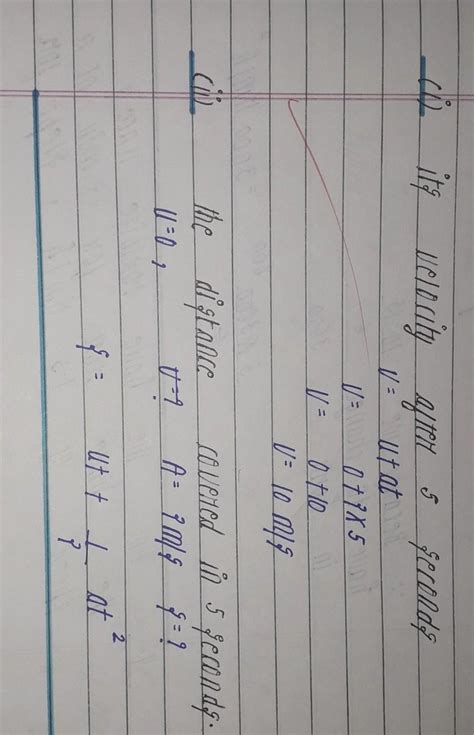 (i) its velocity after 5 seconds
v = u + at
v = 0 + 2 x 5
v = 0 + 10
v = 10 m/s
(ii) the distance covered in 5 seconds.
u = 0, v = ? A = 2 m/s s = ?
s = ut + 1/2 at²